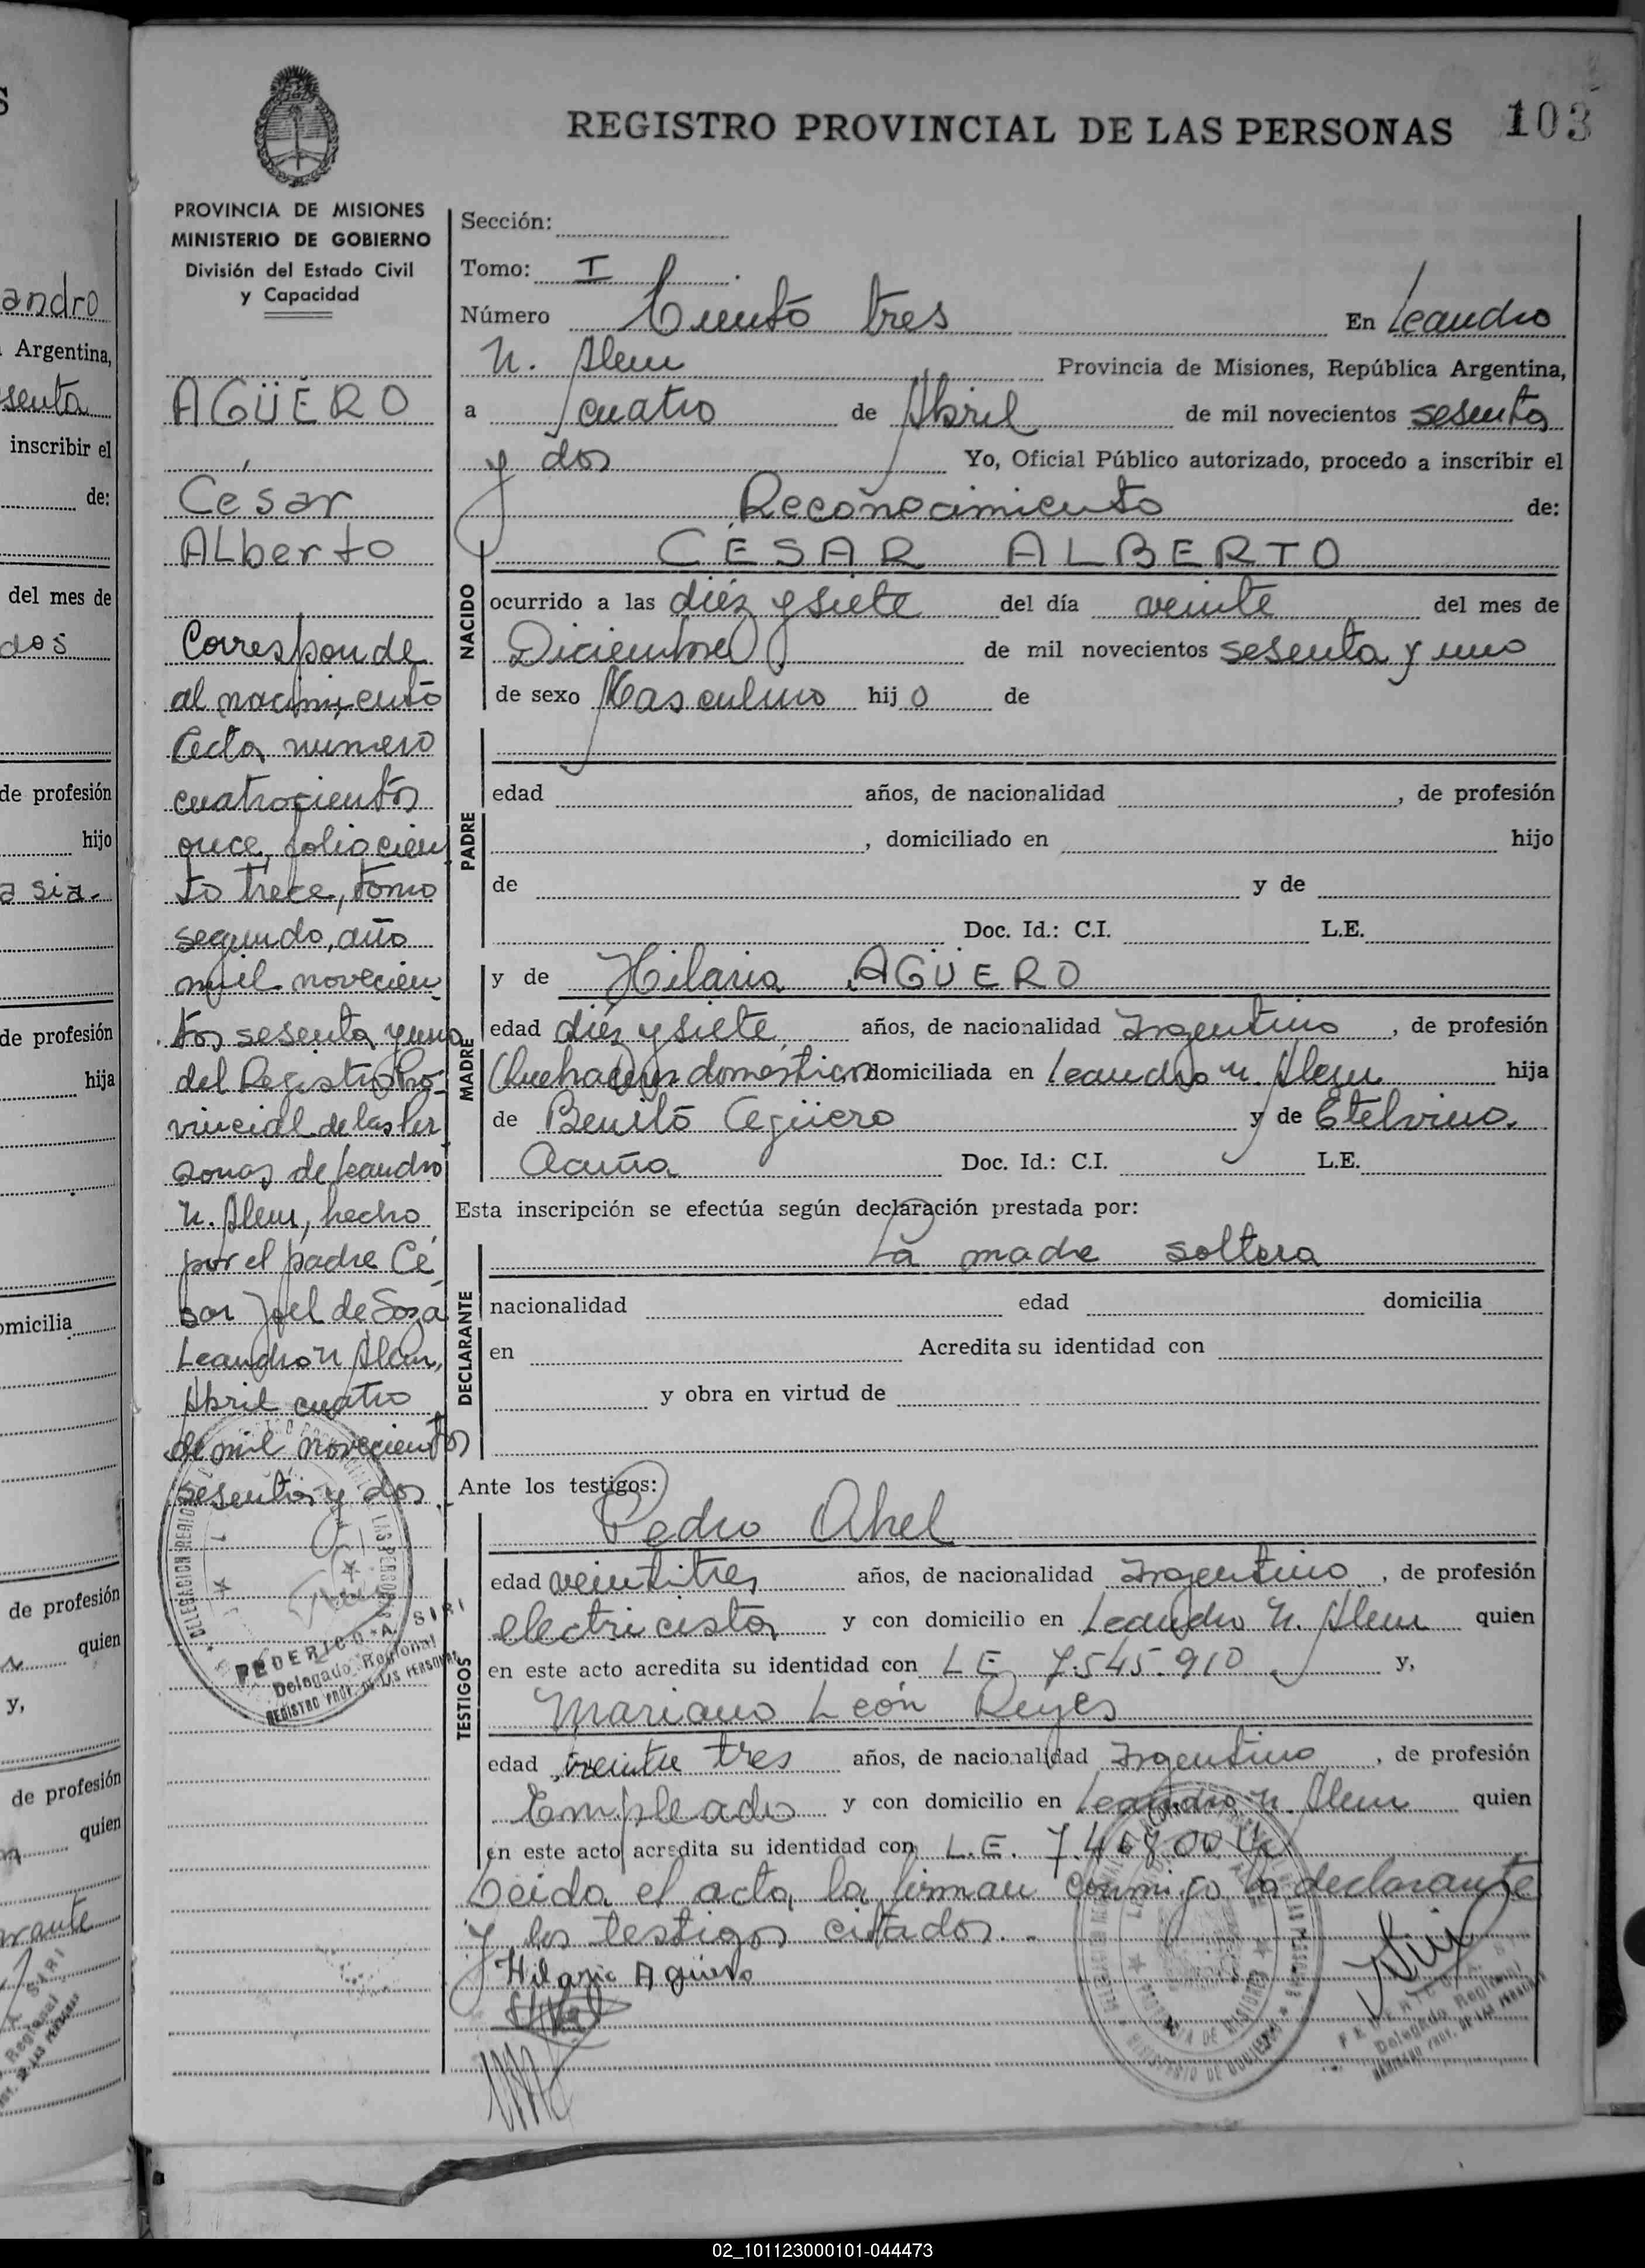 REGISTRO PROVINCIAL DE LAS PERSONAS 103
PROVINCIA DE MISIONES
MINISTERIO DE GOBIERNO
División del Estado Civil
y Capacidad
AGÜERO
César
ALberto
Corresponde
al nacimiento
Acta numero
cuatrocientos
once, folio cien
to trece, tomo
segundo, año
mil novecien
tos sesenta y uno
del Registro Pro-
vincial de las Per
sonas de Leandro
N. Alem, hecho
por el padre Cé
sar Joel de Soza
Leandro N Alem,
Abril cuatro
de mil novecientos
sesenta y dos.
FEDERICO A. SIRI
Delegado Regional
REGISTRO PROV. DE LAS PERSONAS
Sección:
Tomo: I
Número Ciento tres En Leandro
N. Alem Provincia de Misiones, República Argentina,
a cuatro de Abril de mil novecientos sesenta
y dos Yo, Oficial Público autorizado, procedo a inscribir el
Reconocimiento de:
CÉSAR ALBERTO
NACIDO
ocurrido a las diéz y siete del día veinte del mes de
Diciembre de mil novecientos sesenta y uno
de sexo Masculino hijo de
PADRE
edad años, de nacionalidad , de profesión
, domiciliado en hijo
de y de
Doc. Id.: C.I. L.E.
MADRE
y de Hilaria AGÜERO
edad diéz y siete años, de nacionalidad Argentina , de profesión
Quehaceres domésticos domiciliada en Leandro N. Alem hija
de Benito Agüero y de Etelvina
Acuña Doc. Id.: C.I. L.E.
Esta inscripción se efectúa según declaración prestada por:
DECLARANTE
La madre soltera
nacionalidad edad domicilia
en Acredita su identidad con
y obra en virtud de
Ante los testigos:
TESTIGOS
Pedro Ahel
edad veintitres años, de nacionalidad Argentino , de profesión
electricista y con domicilio en Leandro N. Alem quien
en este acto acredita su identidad con LE 7.545.910 y,
Mariano León Reyes
edad veinte tres años, de nacionalidad Argentino , de profesión
Empleado y con domicilio en Leandro N. Alem quien
en este acto acredita su identidad con L.E.
Leida el acta, la firman conmigo la declarante
y los testigos citados.-
Hilaria Agüero
FEDERICO A. SIRI
Delegado Regional
REGISTRO PROV. DE LAS PERSONAS
02_101123000101-044473